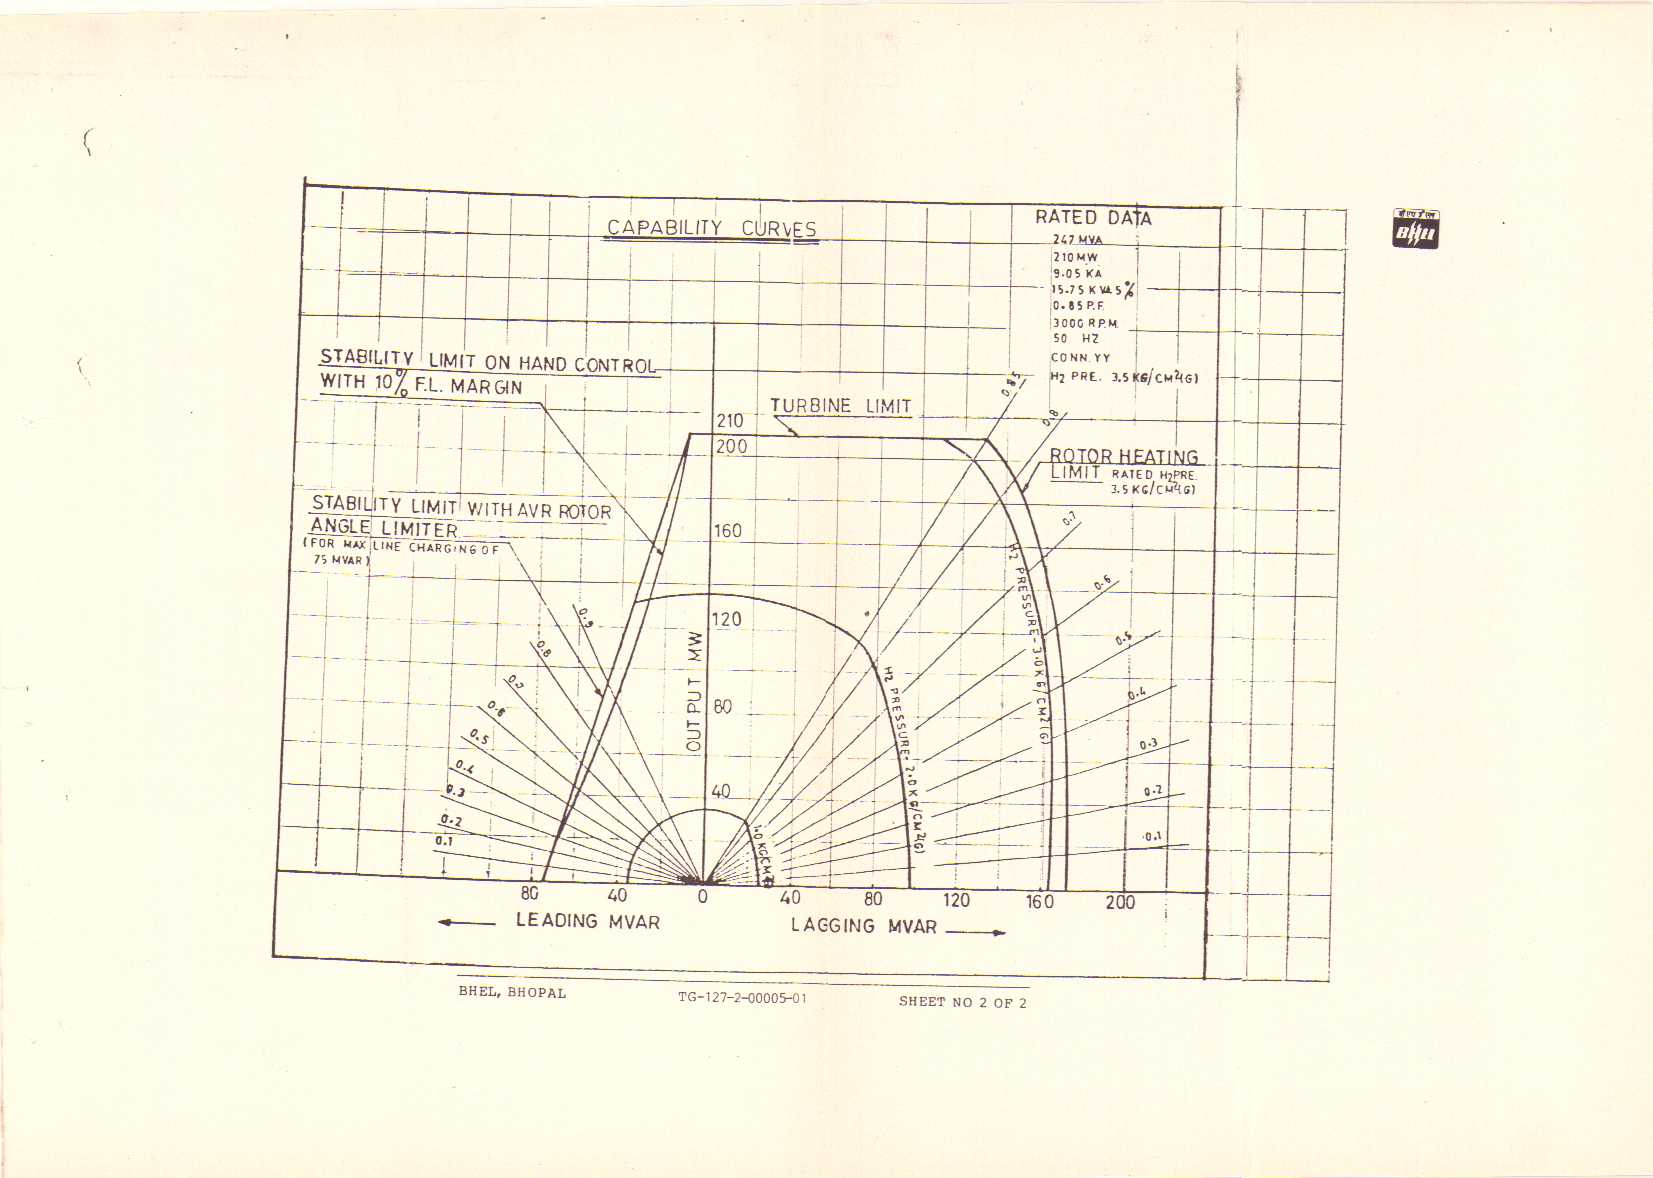 CAPABILITY CURVES
RATED DATA
247 MVA
210 MW
9.05 KA
15.75 KV±5%
0.85 P.F.
3000 R.P.M.
50 HZ
CONN. YY
H2 PRE. 3.5 KG/CM2(G)
BHEL
STABILITY LIMIT ON HAND CONTROL
WITH 10% F.L. MARGIN
TURBINE LIMIT
0.85
0.8
210
200
ROTOR HEATING
LIMIT RATED H2PRE.
3.5 KG/CM2(G)
STABILITY LIMIT WITH AVR ROTOR
ANGLE LIMITER
(FOR MAX LINE CHARGING OF
75 MVAR)
160
120
80
40
OUTPUT MW
0.9
0.8
0.7
0.6
0.5
0.4
0.3
0.2
0.1
0.7
0.6
0.5
0.4
0.3
0.2
0.1
H2 PRESSURE-3.0KG/CM2(G)
H2 PRESSURE-2.0KG/CM2(G)
1.0 KG/CM2(G)
80 40 0 40 80 120 160 200
LEADING MVAR LAGGING MVAR
BHEL, BHOPAL TG-127-2-00005-01 SHEET NO 2 OF 2